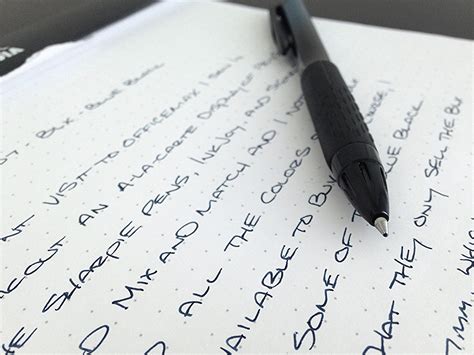 07 - BLK - BLUE BLACK
NT VISIT TO OFFICEMAX I
CKOUT AN A-LA-CARTE DISPLAY OF
E SHARPIE PENS, INKJOY, AND
D MIX AND MATCH AND I NO
D ALL THE COLORS
VAILABLE TO BUY
SOME OF T UE BLACK
HAT THEY ONLY SELL THE BLK
7MM, WHIC